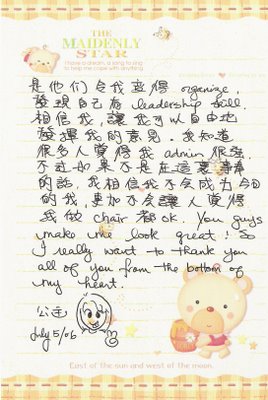 THE
MAIDENLY
STAR
I have a dream, a song to sing
to help me cope with anything
是他们令我變得 organize,
發現自己有 leadership skill.
相信我,讓我可以自由地
發揮我的意見。我知道
很多人覺得我 admin 很強,
不过如果不是在這裏
的話,我相信我不会成為今日
的我,更加不会讓人覺得
我做 chair 都OK. You guys
make me look great! So
I really want to thank you
all of you from the bottom of
my heart.
July 5/06
East of the sun and west of the moon.